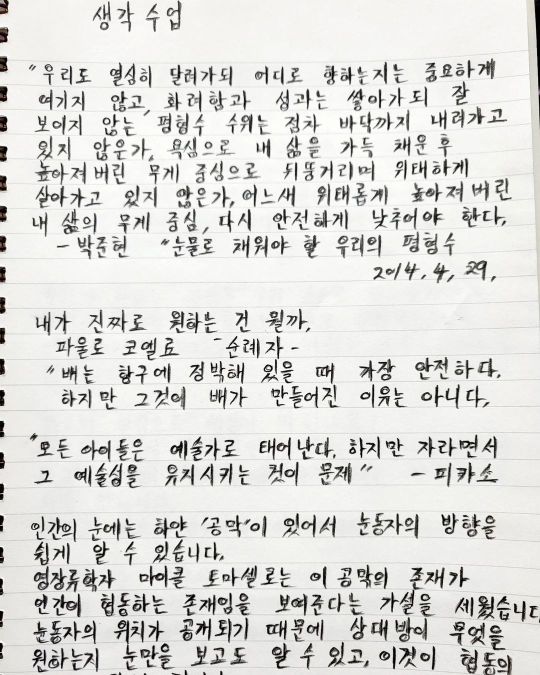 생각 수업
"우리도 열심히 달려가되 어디로 향하는지는 중요하게
여기지 않고, 화려함과 성과는 쌓아가되 잘
보이지 않는 평형수 수위는 점차 바닥까지 내려가고
있지 않은가, 욕심으로 내 삶을 가득 채운 후
높아져버린 무게 중심으로 뒤뚱거리며 위태하게
살아가고 있지 않은가, 어느새 위태롭게 높아져버린
내 삶의 무게 중심, 다시 안전하게 낮추어야 한다.
- 박준현 "눈물로 채워야 할 우리의 평형수
2014. 4. 29.
내가 진짜로 원하는 건 뭘까.
파울로 코엘료 - 순례자 -
"배는 항구에 정박해 있을 때 가장 안전하다.
하지만 그것이 배가 만들어진 이유는 아니다.
"모든 아이들은 예술가로 태어난다. 하지만 자라면서
그 예술성을 유지시키는 것이 문제" - 피카소
인간의 눈에는 하얀 '공막'이 있어서 눈동자의 방향을
쉽게 알 수 있습니다.
영장류학자 마이클 토마셀로는 이 공막의 존재가
인간이 협동하는 존재임을 보여준다는 가설을 세웠습니다
눈동자의 위치가 공개되기 때문에 상대방이 무엇을
원하는지 눈만을 보고도 알 수 있고, 이것이 협동의